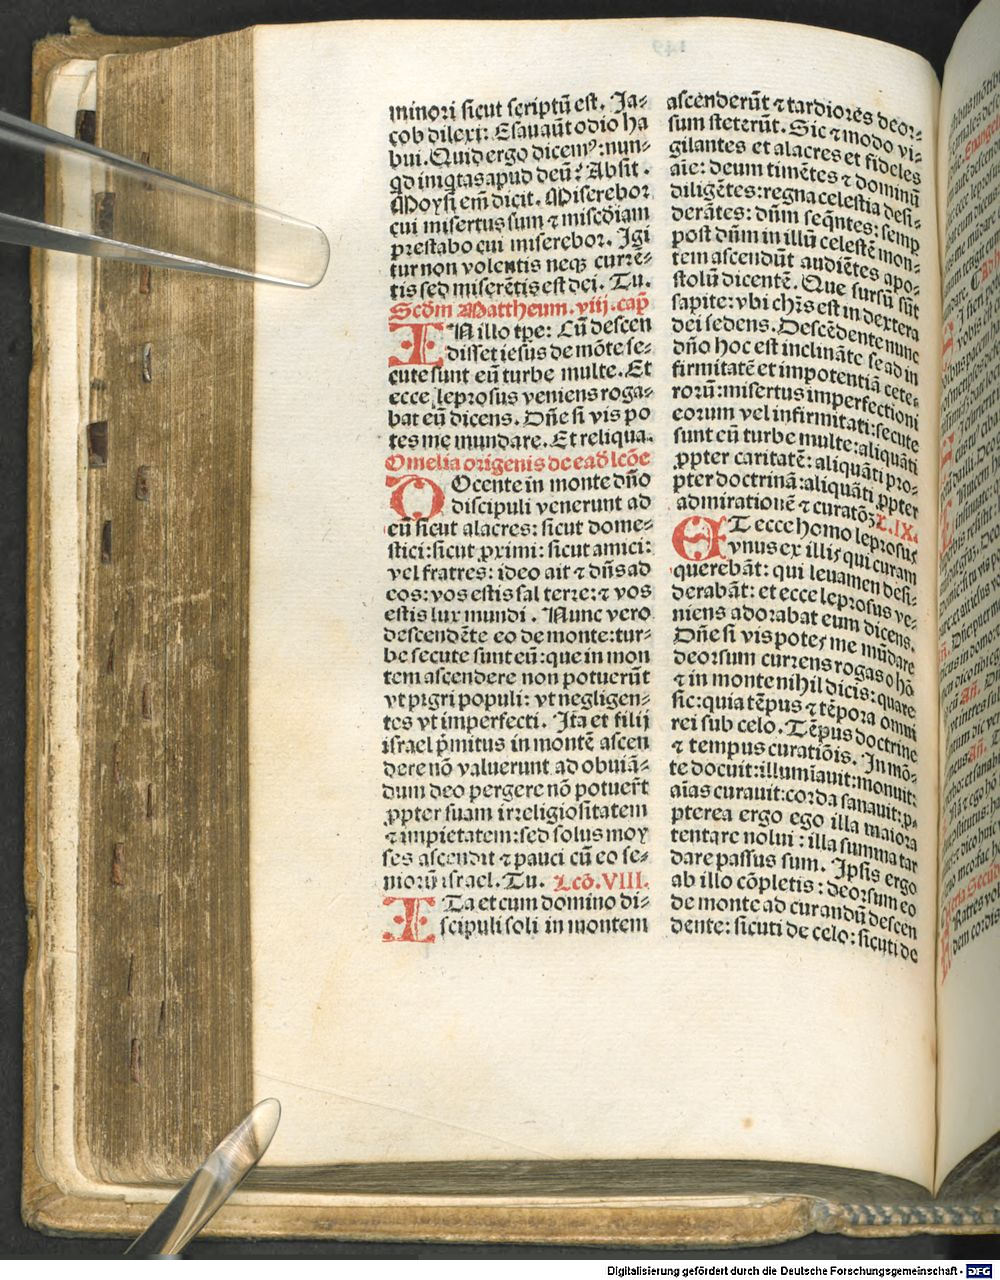 minori sicut scriptũ est. Ja-
cob dilexi: Esau aũt odio ha
bui. Quid ergo dicemꝰ: nun-
qd iniqtas apud deũ? Absit.
Moysi em̃ dicit. Miserebor
cui misertus sum ⁊ miscđiam
prestabo cui miserebor. Igi
tur non volentis neqꝫ currē-
tis sed miserētis est dei. Tu.
Scđm Mattheum. viij. cap̃
IN illo tpe: Cũ descen
disset iesus de mōte se-
cute sunt eũ turbe multe. Et
ecce leprosus veniens roga-
bat eũ dicens. Dñe si vis po
tes me mundare. Et reliqua.
Omelia origenis de eađ lcōe
DOcente in monte dño
discipuli venerunt ad
eũ sicut alacres: sicut dome-
stici: sicut ꝓximi: sicut amici:
vel fratres: ideo ait ⁊ dñs ad
eos: vos estis sal terre: ⁊ vos
estis lux mundi. Nunc vero
descendēte eo de monte: tur-
be secute sunt eũ: que in mon
tem ascendere non potuerũt
vt pigri populi: vt negligen-
tes vt imperfecti. Ita et filij
israel p̃mitus in montē ascen
dere nō valuerunt ad obuiā-
dum deo pergere nō potuer̃t
ꝓpter suam irreligiositatem
⁊ impietatem: sed solus moy
ses ascendit ⁊ pauci cũ eo se-
niorũ israel. Tu. Lcō. VIII.
ITa et cum domino di-
scipuli soli in montem
ascenderũt ⁊ tardiores deor-
sum steterũt. Sic ⁊ modo vi-
gilantes et alacres et fideles
aīe: deum timētes ⁊ dominũ
diligētes: regna celestia desi-
derātes: dñm seqñtes: semp
post dñm in illũ celestē mon-
tem ascendũt audiētes apo-
stolũ dicentē. Que sursũ sũt
sapite: vbi chr̃s est in dextera
dei sedens. Descēdente nunc
dño hoc est inclināte se ad in
firmitatē et impotentiā cete-
rorũ: misertus imperfectioni
eorum vel infirmitati: secute
sunt eũ turbe multe: aliquāti
ꝓpter caritatē: aliquāti pro-
pter doctrinā: aliquāti ꝓpter
admirationē ⁊ curatōꝫ L. IX.
ET ecce homo leprosus
vnus ex illis qui curam
querebāt: qui leuamen desi-
derabāt: et ecce leprosus ve-
niens adorabat eum dicens.
Dñe si vis potes me mũdare
deorsum currens rogas o hō
⁊ in monte nihil dicis: quare
sic: quia tēpus ⁊ tēpora omni
rei sub celo. Tēpus doctrine
⁊ tempus curatiōis. In mō-
te docuit: illumīauit: monuit:
aīas curauit: corda sanauit: ꝓ-
pterea ergo ego illa maiora
tentare nolui: illa summa tar
dare passus sum. Ipsis ergo
ab illo cōpletis: deorsum eo
de monte ad curandũ descen
dente: sicuti de celo: sicuti de
Digitalisierung gefördert durch die Deutsche Forschungsgemeinschaft - DFG